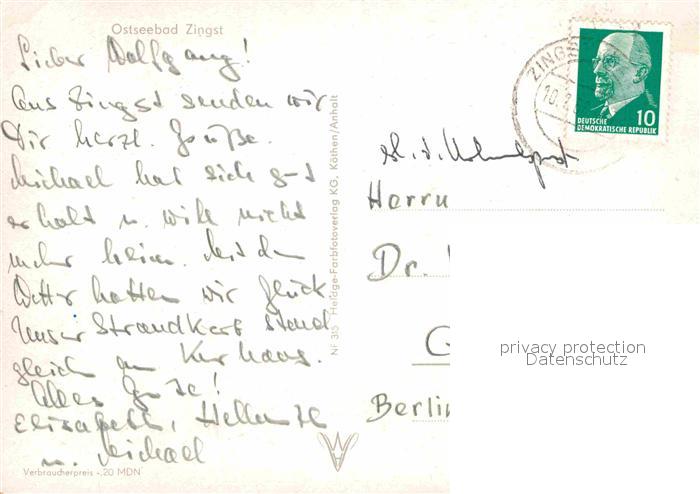 Ostseebad Zingst
Lieber Wolfgang!
Aus Zingst senden wir
Dir herzl. Grüße.
Michael hat sich gut
erholt u. will nicht
mehr heim. Mit dem
Wetter hatten wir Glück
Unser Strandkorb stand
gleich am Kurhaus.
Alles Gute!
Elisabeth,
u. Michael
Verbraucherpreis -,20 MDN
Nr 315 Heldge-Farbfotoverlag KG, Köthen/Anhalt
ZINGST
10
DEUTSCHE
DEMOKRATISCHE REPUBLIK
Herrn
Dr.
G
Berlin
privacy protection
Datenschutz